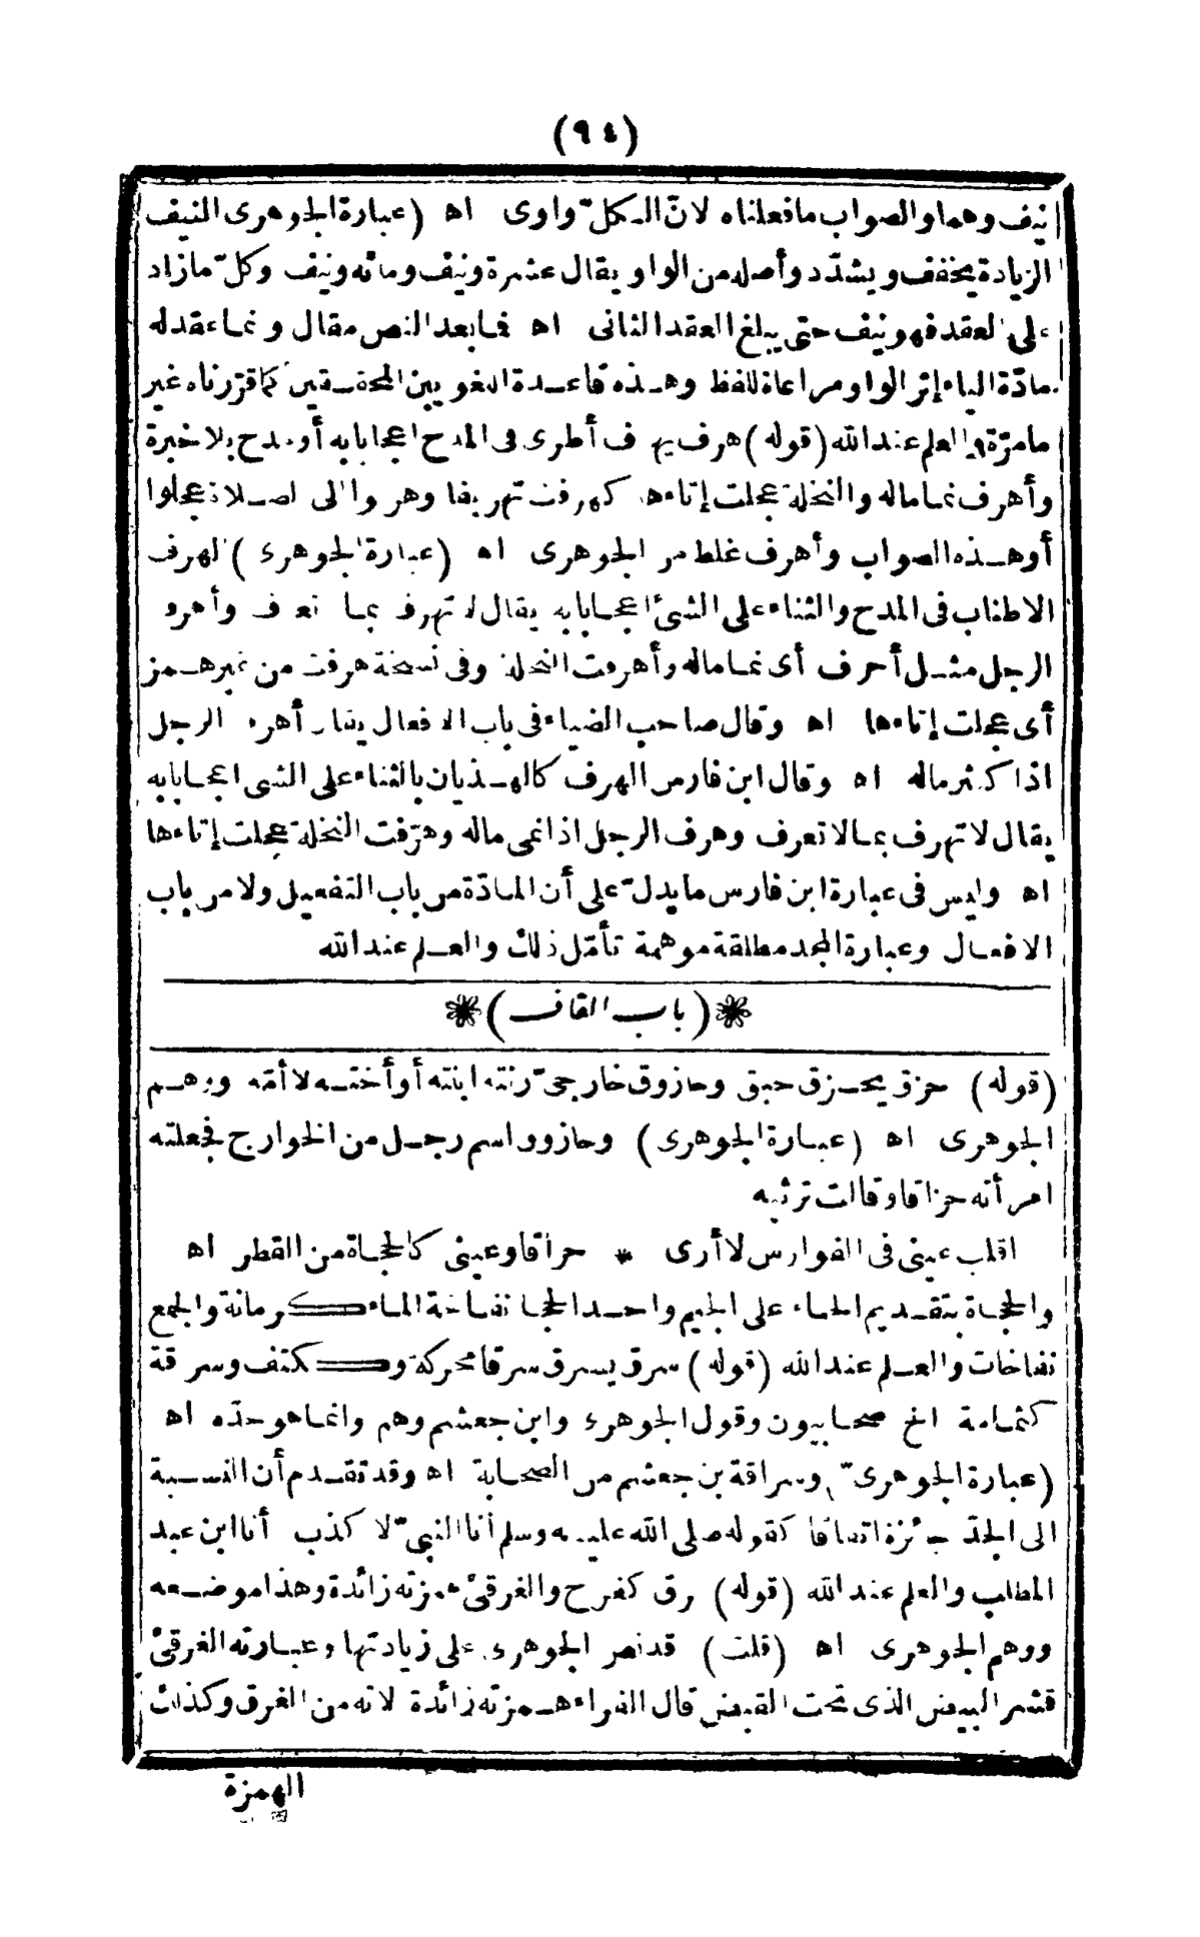 (٩٤)
نيف وهما والصواب ما فعلناه لانّ الكلّ واوى اه (عبارة الجوهرى النيف
الزيادة يخفف ويشدّد وأصله من الواو يقال عشرة ونيف ومائة ونيف وكلّ ما زاد
على العقد فهو نيف حتى يبلغ العقد الثانى اه فما بعد النص مقال وانما عقد له
مادّة الياء إثر الواو مراعاة للفظ وهذه قاعدة اللغويين المحققين كما قرّرناه غير
ما مرّة والعلم عند الله (قوله) هرف يهرف أطرى فى المدح اعجابا به أو مدح بلا خبرة
وأهرف نما ماله والنخلة عجلت إتاءها كهرفت تهريفا وهرفوا الى الصلاة عجلوا
أو هذه الصواب وأهرف غلط من الجوهرى اه (عبارة الجوهرى) الهرف
الاطناب فى المدح والثناء على الشئ اعجابا به يقال لا تهرف بما لا تعرف وأهرف
الرجل مثل أحرف أى نما ماله وأهرفت النخلة وفى نسخة هرفت من غير همز
أى عجلت إتاءها اه وقال صاحب الضياء فى باب الافعال يقال أهرف الرجل
اذا كثر ماله اه وقال ابن فارس الهرف كالهذيان بالثناء على الشئ اعجابا به
يقال لا تهرف بما لا تعرف وهرف الرجل اذا نمى ماله وهرّفت النخلة عجلت إتاءها
اه وليس فى عبارة ابن فارس ما يدلّ على أن المادّة من باب التفعيل ولا من باب
الافعال وعبارة المجد مطلقة موهمة تأمّل ذلك والعلم عند الله
* (باب القاف) *
(قوله) حزق يحزق حبق وحازوق خارجىّ رثته ابنته أو أخته لا أمّه ووهم
الجوهرى اه (عبارة الجوهرى) وحازوق اسم رجل من الخوارج فجعلته
امرأته حزاقا وقالت ترثيه
اقلب عينى فى الفوارس لا أرى * حزاقا وعينى كالحجاة من القطر اه
والحجاة بتقديم الحاء على الجيم واحد الحجا نفاخة الماء كرمانة والجمع
نفاخات والعلم عند الله (قوله) سرق يسرق سرقا محركة وككتف وسرقة
كثمامة الخ صحابيون وقول الجوهرى وابن جعشم وهم وانما هو جدّه اه
(عبارة الجوهرىّ) وسراقة بن جعشم من الصحابة اه وقد تقدم أن النسبة
الى الجدّ جائزة اتفاقا كقوله صلى الله عليه وسلم أنا النبىّ لا كذب أنا ابن عبد
المطلب والعلم عند الله (قوله) رق كفرح والغرقئ همزته زائدة وهذا موضعه
ووهم الجوهرى اه (قلت) قد نص الجوهرى على زيادتها وعبارته الغرقئ
قشر البيض الذى تحت القيض قال الفراء همزته زائدة لانه من الغرق وكذلك
الهمزة